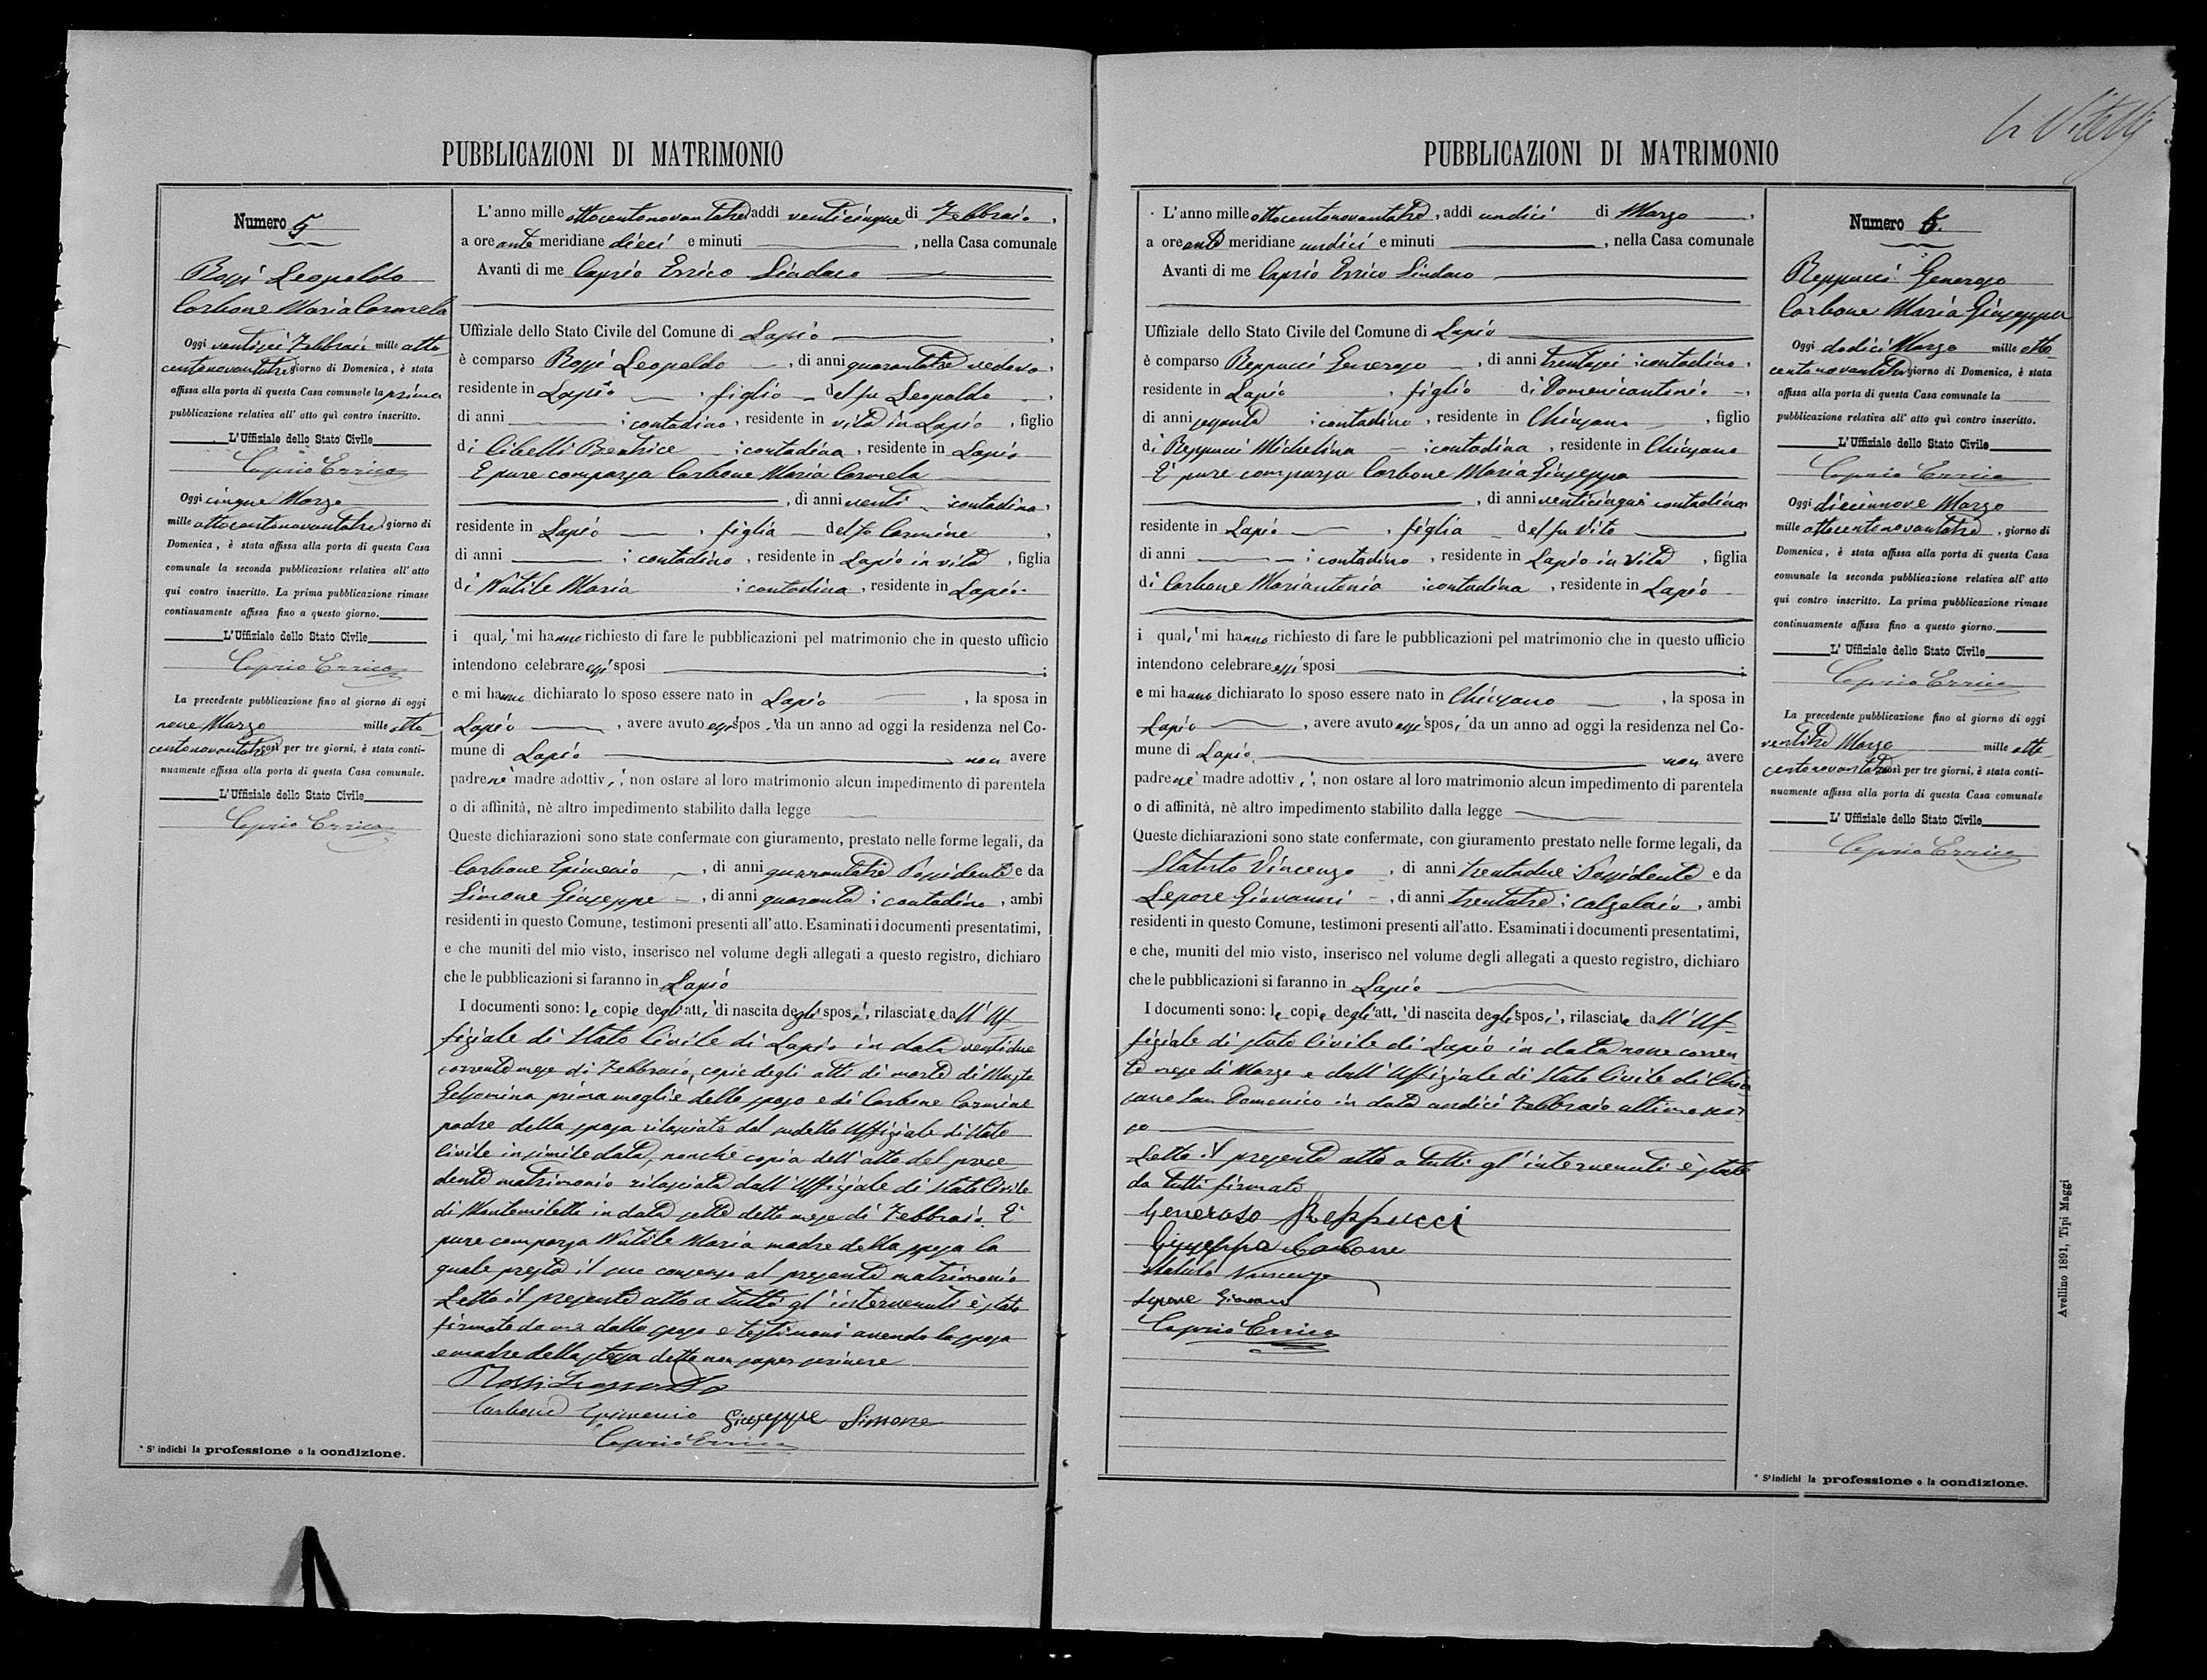 PUBBLICAZIONI DI MATRIMONIO
Numero 5
Rossi Leopoldo
Carbone Maria Carmela
Oggi ventisei Febbraio mille otto
centonovantatre giorno di Domenica, è stata
affissa alla porta di questa Casa comunale la prima
pubblicazione relativa all' atto quì contro inscritto.
L'Uffiziale dello Stato Civile
Caprio Errico
Oggi cinque Marzo
mille ottocentonovantatre giorno di
Domenica, è stata affissa alla porta di questa Casa
comunale la seconda pubblicazione relativa all' atto
qui contro inscritto. La prima pubblicazione rimase
continuamente affissa fino a questo giorno.
L'Uffiziale dello Stato Civile
Caprio Errico
La precedente pubblicazione fino al giorno di oggi
nove Marzo mille otto
centonovantatre così per tre giorni, è stata conti-
nuamente affissa alla porta di questa Casa comunale.
L'Uffiziale dello Stato Civile
Caprio Errico
* S' indichi la professione o la condizione.
L'anno mille ottocentonovantatre addì venticinque di Febbraio,
a ore ante meridiane dieci e minuti , nella Casa comunale
Avanti di me Caprio Errico Sindaco
Uffiziale dello Stato Civile del Comune di Lapio
è comparso Rossi Leopoldo, di anni quarantatre vedovo,
residente in Lapio, figlio del fu Leopoldo
di anni ; contadino, residente in vita in Lapio, figlio
di Cibelli Beatrice ; contadina, residente in Lapio
E pure comparsa Carbone Maria Carmela
, di anni venti ; contadina,
residente in Lapio, figlia del fu Carmine
di anni ; contadino, residente in Lapio in vita, figlia
di Nutile Maria ; contadina, residente in Lapio.
i quali mi hanno richiesto di fare le pubblicazioni pel matrimonio che in questo ufficio
intendono celebrare essi sposi ;
e mi hanno dichiarato lo sposo essere nato in Lapio, la sposa in
Lapio, avere avuto essi sposi da un anno ad oggi la residenza nel Co-
mune di Lapio non avere
padre nè madre adottivi, non ostare al loro matrimonio alcun impedimento di parentela
o di affinità, nè altro impedimento stabilito dalla legge
Queste dichiarazioni sono state confermate con giuramento, prestato nelle forme legali, da
Carbone Epimenio, di anni quarantatre Possidente e da
Simone Giuseppe, di anni quaranta ; contadino, ambi
residenti in questo Comune, testimoni presenti all'atto. Esaminati i documenti presentatimi,
e che muniti del mio visto, inserisco nel volume degli allegati a questo registro, dichiaro
che le pubblicazioni si faranno in Lapio
I documenti sono: le copie degli atti di nascita degli sposi, rilasciate dall'Uf-
fiziale di Stato Civile di Lapio in data ventidue
corrente mese di Febbraio, copie degli atti di morte di
Gelsomina prima moglie dello sposo e di Carbone Carmine
padre della sposa rilasciate dal sudetto Uffiziale di Stato
Civile in simile data, nonchè copia dell'atto del prece
dente matrimonio rilasciata dall'Uffiziale di Stato Civile
di Montemiletto in data sette detto mese di Febbraio. E'
pure comparsa Nutile Maria madre della sposa la
quale presta il suo consenso al presente matrimonio
Letto il presente atto a tutti gl'intervenuti è stato
firmato da me dallo sposo e testimoni avendo la sposa
e madre della stessa detto non saper scrivere
Rossi Leopoldo
Carbone Epimenio Giuseppe Simone
Caprio Errico
PUBBLICAZIONI DI MATRIMONIO
L'anno mille ottocentonovantatre, addì undici di Marzo,
a ore ante meridiane undici e minuti , nella Casa comunale
Avanti di me Caprio Errico Sindaco
Uffiziale dello Stato Civile del Comune di Lapio
è comparso Reppucci Generoso, di anni trentasei ; contadino,
residente in Lapio, figlio di Domenicantonio,
di anni sessanta ; contadino, residente in Chiusano, figlio
di Reppucci Michelina ; contadina, residente in Chiusano
E' pure comparsa Carbone Maria Giuseppa
, di anni venticinque contadina
residente in Lapio, figlia del fu Vito
di anni ; contadino, residente in Lapio in vita, figlia
di Carbone Mariantonia ; contadina, residente in Lapio
i quali mi hanno richiesto di fare le pubblicazioni pel matrimonio che in questo ufficio
intendono celebrare essi sposi ;
e mi hanno dichiarato lo sposo essere nato in Chiusano, la sposa in
Lapio, avere avuto essi sposi da un anno ad oggi la residenza nel Co-
mune di Lapio non avere
padre nè madre adottivi, non ostare al loro matrimonio alcun impedimento di parentela
o di affinità, nè altro impedimento stabilito dalla legge
Queste dichiarazioni sono state confermate, con giuramento prestato nelle forme legali, da
Statuto Vincenzo, di anni trentadue Possidente e da
Lepore Giovanni, di anni trentatre ; calzolaio, ambi
residenti in questo Comune, testimoni presenti all'atto. Esaminati i documenti presentatimi,
e che, muniti del mio visto, inserisco nel volume degli allegati a questo registro, dichiaro
che le pubblicazioni si faranno in Lapio
I documenti sono: le copie degli atti di nascita degli sposi, rilasciate dall'Uf-
fiziale di stato Civile di Lapio in data nove corren
te mese di Marzo e dall'Uffiziale di Stato Civile di Chiu
sano San Domenico in data undici Febbraio ultimo scor
so
Letto il presente atto a tutti gl'intervenuti è stato
da tutti firmato
Generoso Reppucci
Giuseppa Carbone
Statuto Vincenzo
Lepore Giovanni
Caprio Errico
Numero 6.
Reppucci Generoso
Carbone Maria Giuseppa
Oggi dodici Marzo mille otto
centonovantatre giorno di Domenica, è stata
affissa alla porta di questa Casa comunale la
pubblicazione relativa all' atto quì contro inscritto.
L'Uffiziale dello Stato Civile
Caprio Errico
Oggi diecinnove Marzo
mille ottocentonovantatre, giorno di
Domenica, è stata affissa alla porta di questa Casa
comunale la seconda pubblicazione relativa all' atto
qui contro inscritto. La prima pubblicazione rimase
continuamente affissa fino a questo giorno.
L' Uffiziale dello Stato Civile
Caprio Errico
La precedente pubblicazione fino al giorno di oggi
ventitre Marzo mille otto
centonovantatre così per tre giorni, è stata conti-
nuamente affissa alla porta di questa Casa comunale
L' Uffiziale dello Stato Civile
Caprio Errico
* S' indichi la professione o la condizione.
Avellino 1891, Tipi Maggi